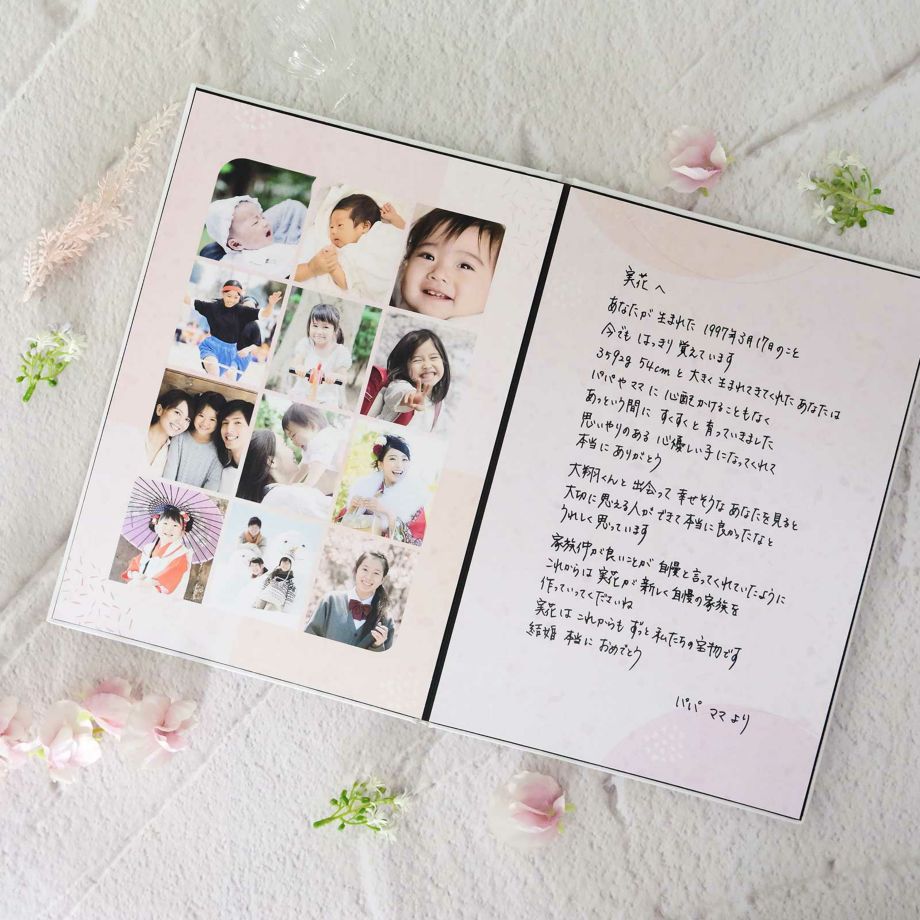 実花へ
あなたが生まれた 1997年3月17日のこと
今でも はっきり 覚えています
3592g 54cm と 大きく 生まれてきてくれた あなたは
パパや ママに 心配かけることもなく
あっという間に すくすくと 育っていきました
思いやりのある 心優しい子に なってくれて
本当に ありがとう
大翔くんと 出会って 幸せそうな あなたを見ると
大切に思える人が できて 本当に 良かったなと
うれしく 思っています
家族仲が良いことが 自慢と言ってくれていたように
これからは 実花が 新しく 自慢の家族を
作っていってくださいね
実花は これからも ずっと 私たちの宝物です
結婚 本当に おめでとう
パパ ママより